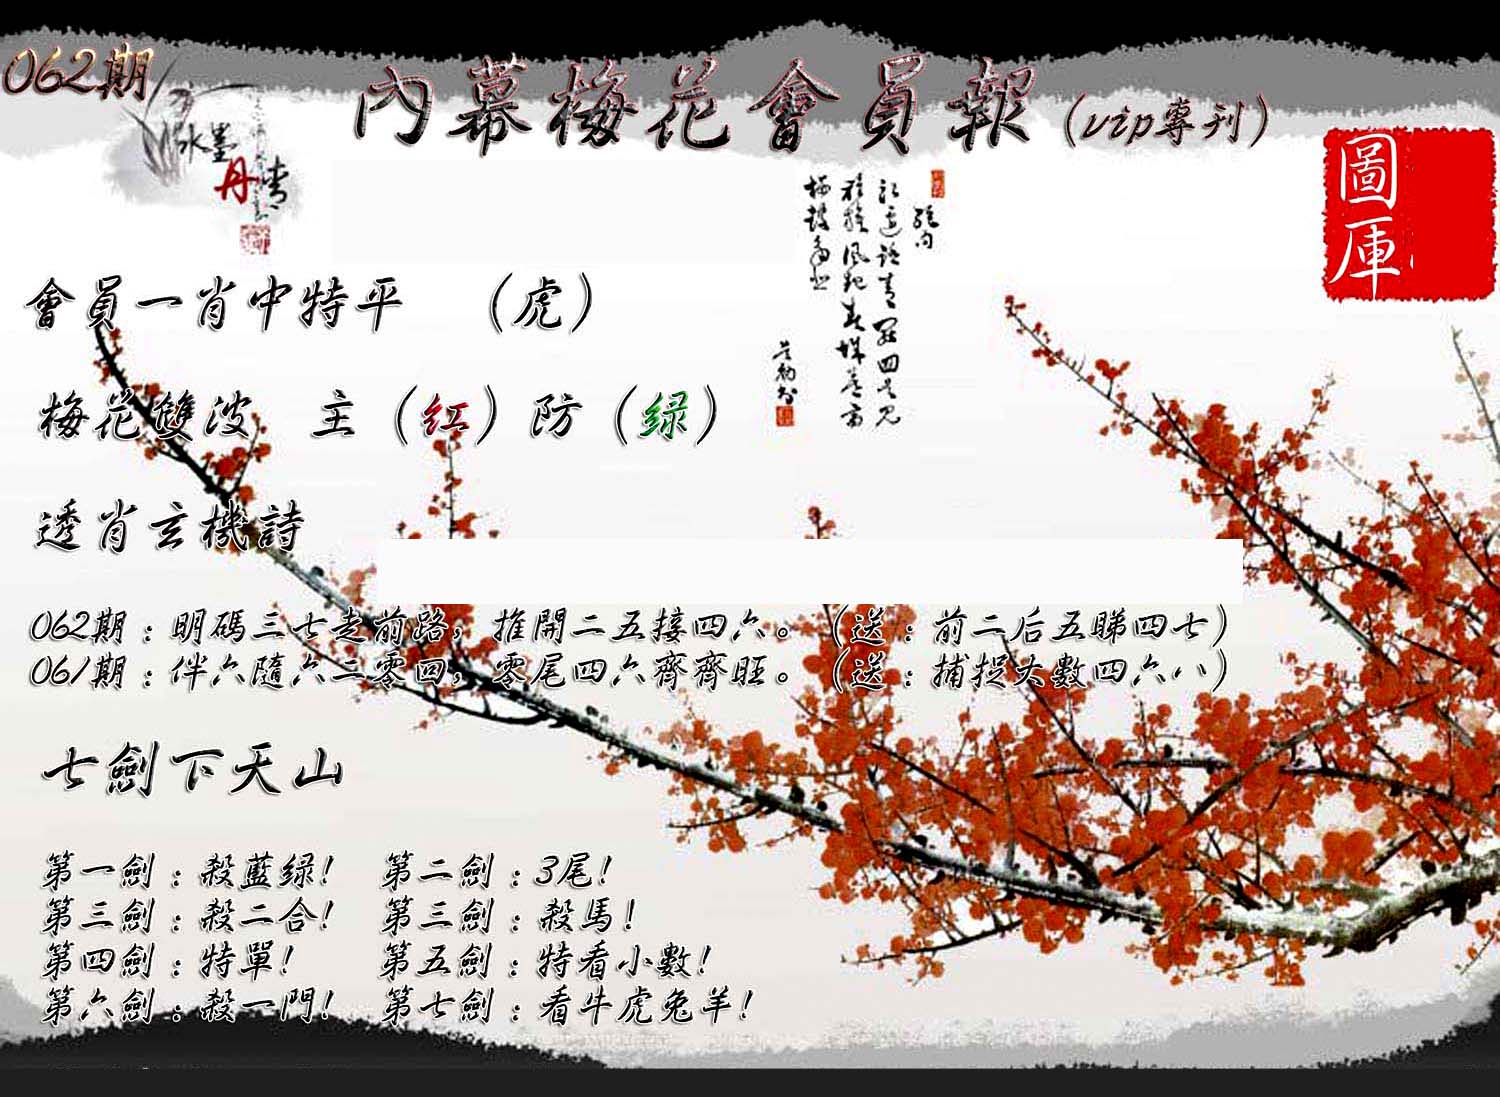 062期
內幕梅花會員報（vip專刊）
水墨
丹青
圖庫
會員一肖中特平 （虎）
梅花雙波 主（红）防（绿）
透肖玄機詩
062期：明碼三七走前路，推開二五接四六。（送：前二后五睇四七）
061期：伴六隨六二零四，零尾四六齊齊旺。（送：捕捉大數四六八）
七劍下天山
第一劍：殺藍绿! 第二劍：3尾!
第三劍：殺二合! 第三劍：殺馬!
第四劍：特單! 第五劍：特看小數!
第六劍：殺一門! 第七劍：看牛虎兔羊!